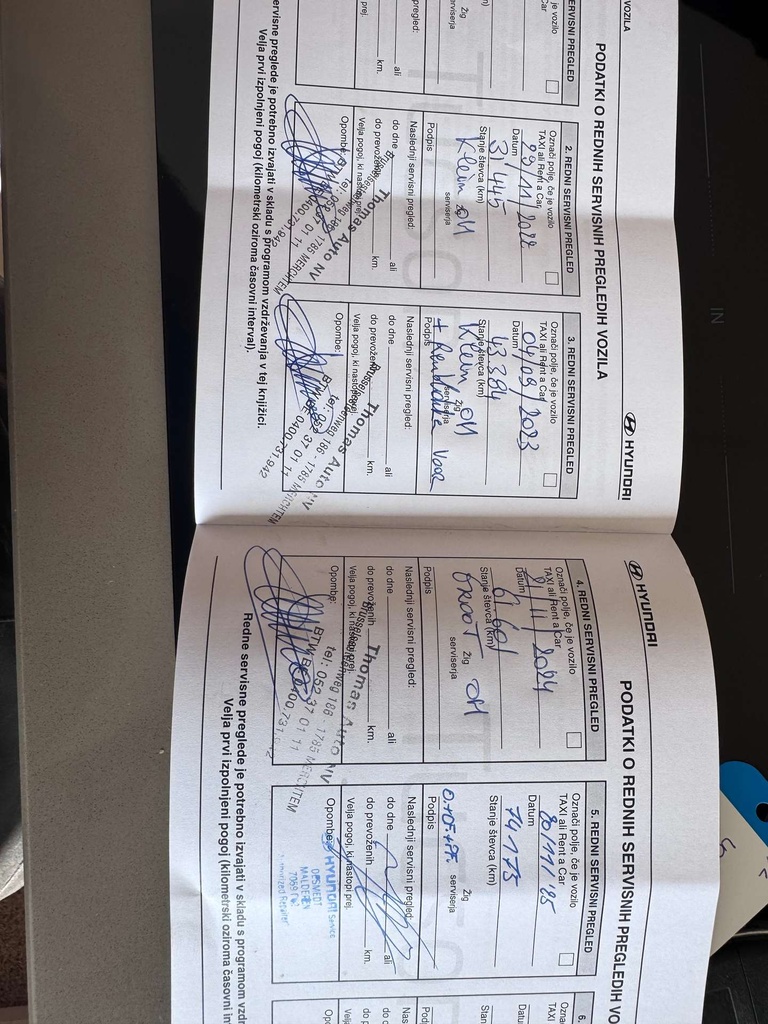 VOZILA
HYUNDAI
PODATKI O REDNIH SERVISNIH PREGLEDIH VOZILA
SERVISNI PREGLED
je vozilo
a Car
žig
serviserja
pregled:
ali
km.
prej.
2. REDNI SERVISNI PREGLED
Označi polje, če je vozilo
TAXI ali Rent a Car
Datum
29/11/2022
Stanje števca (km)
31445
Klein OH
žig
serviserja
Podpis
Naslednji servisni pregled:
do dne ali
do prevoženih km.
Velja pogoj, ki nastopi prej.
Opombe:
Thomas Auto NV
Brusselsesteenweg 186 - 1785 MERCHTEM
3. REDNI SERVISNI PREGLED
Označi polje, če je vozilo
TAXI ali Rent a Car
Datum
04/09/2023
Stanje števca (km)
43384
Klein OH
žig
serviserja
Podpis
+ Remblokke voor
Naslednji servisni pregled:
do dne ali
do prevoženih km.
Velja pogoj, ki nastopi prej.
Opombe:
Thomas Auto NV
186 - 1785 MERCHTEM
tel.: 052 37 01 11
BTW BE 0400.731.942
ervisne preglede je potrebno izvajati v skladu s programom vzdrževanja v tej knjižici.
Velja prvi izpolnjeni pogoj (kilometrski oziroma časovni interval).
HYUNDAI
PODATKI O REDNIH SERVISNIH PREGLEDIH VO
4. REDNI SERVISNI PREGLED
Označi polje, če je vozilo
TAXI ali Rent a Car
Datum
8/11/2024
Stanje števca (km)
61601
GROOT OH
žig
serviserja
Podpis
Naslednji servisni pregled:
do dne ali
do prevoženih km.
Velja pogoj, ki nastopi prej.
Opombe:
Thomas Auto NV
186 - 1785 MERCHTEM
tel.: 052 37 01 11
5. REDNI SERVISNI PREGLED
Označi polje, če je vozilo
TAXI ali Rent a Car
Datum
20/11/'25
Stanje števca (km)
74175
žig
serviserja
Podpis
Naslednji servisni pregled:
do dne ali
do prevoženih km.
Velja pogoj, ki nastopi prej.
Opombe:
HYUNDAI Service
MALDEREN
Authorized Repairer
6.
Ozna
TAXI
Datu
Stan
Pod
Nas
do d
do p
Velj
Opo
Redne servisne preglede je potrebno izvajati v skladu s programom vzdr
Velja prvi izpolnjeni pogoj (kilometrski oziroma časovni in